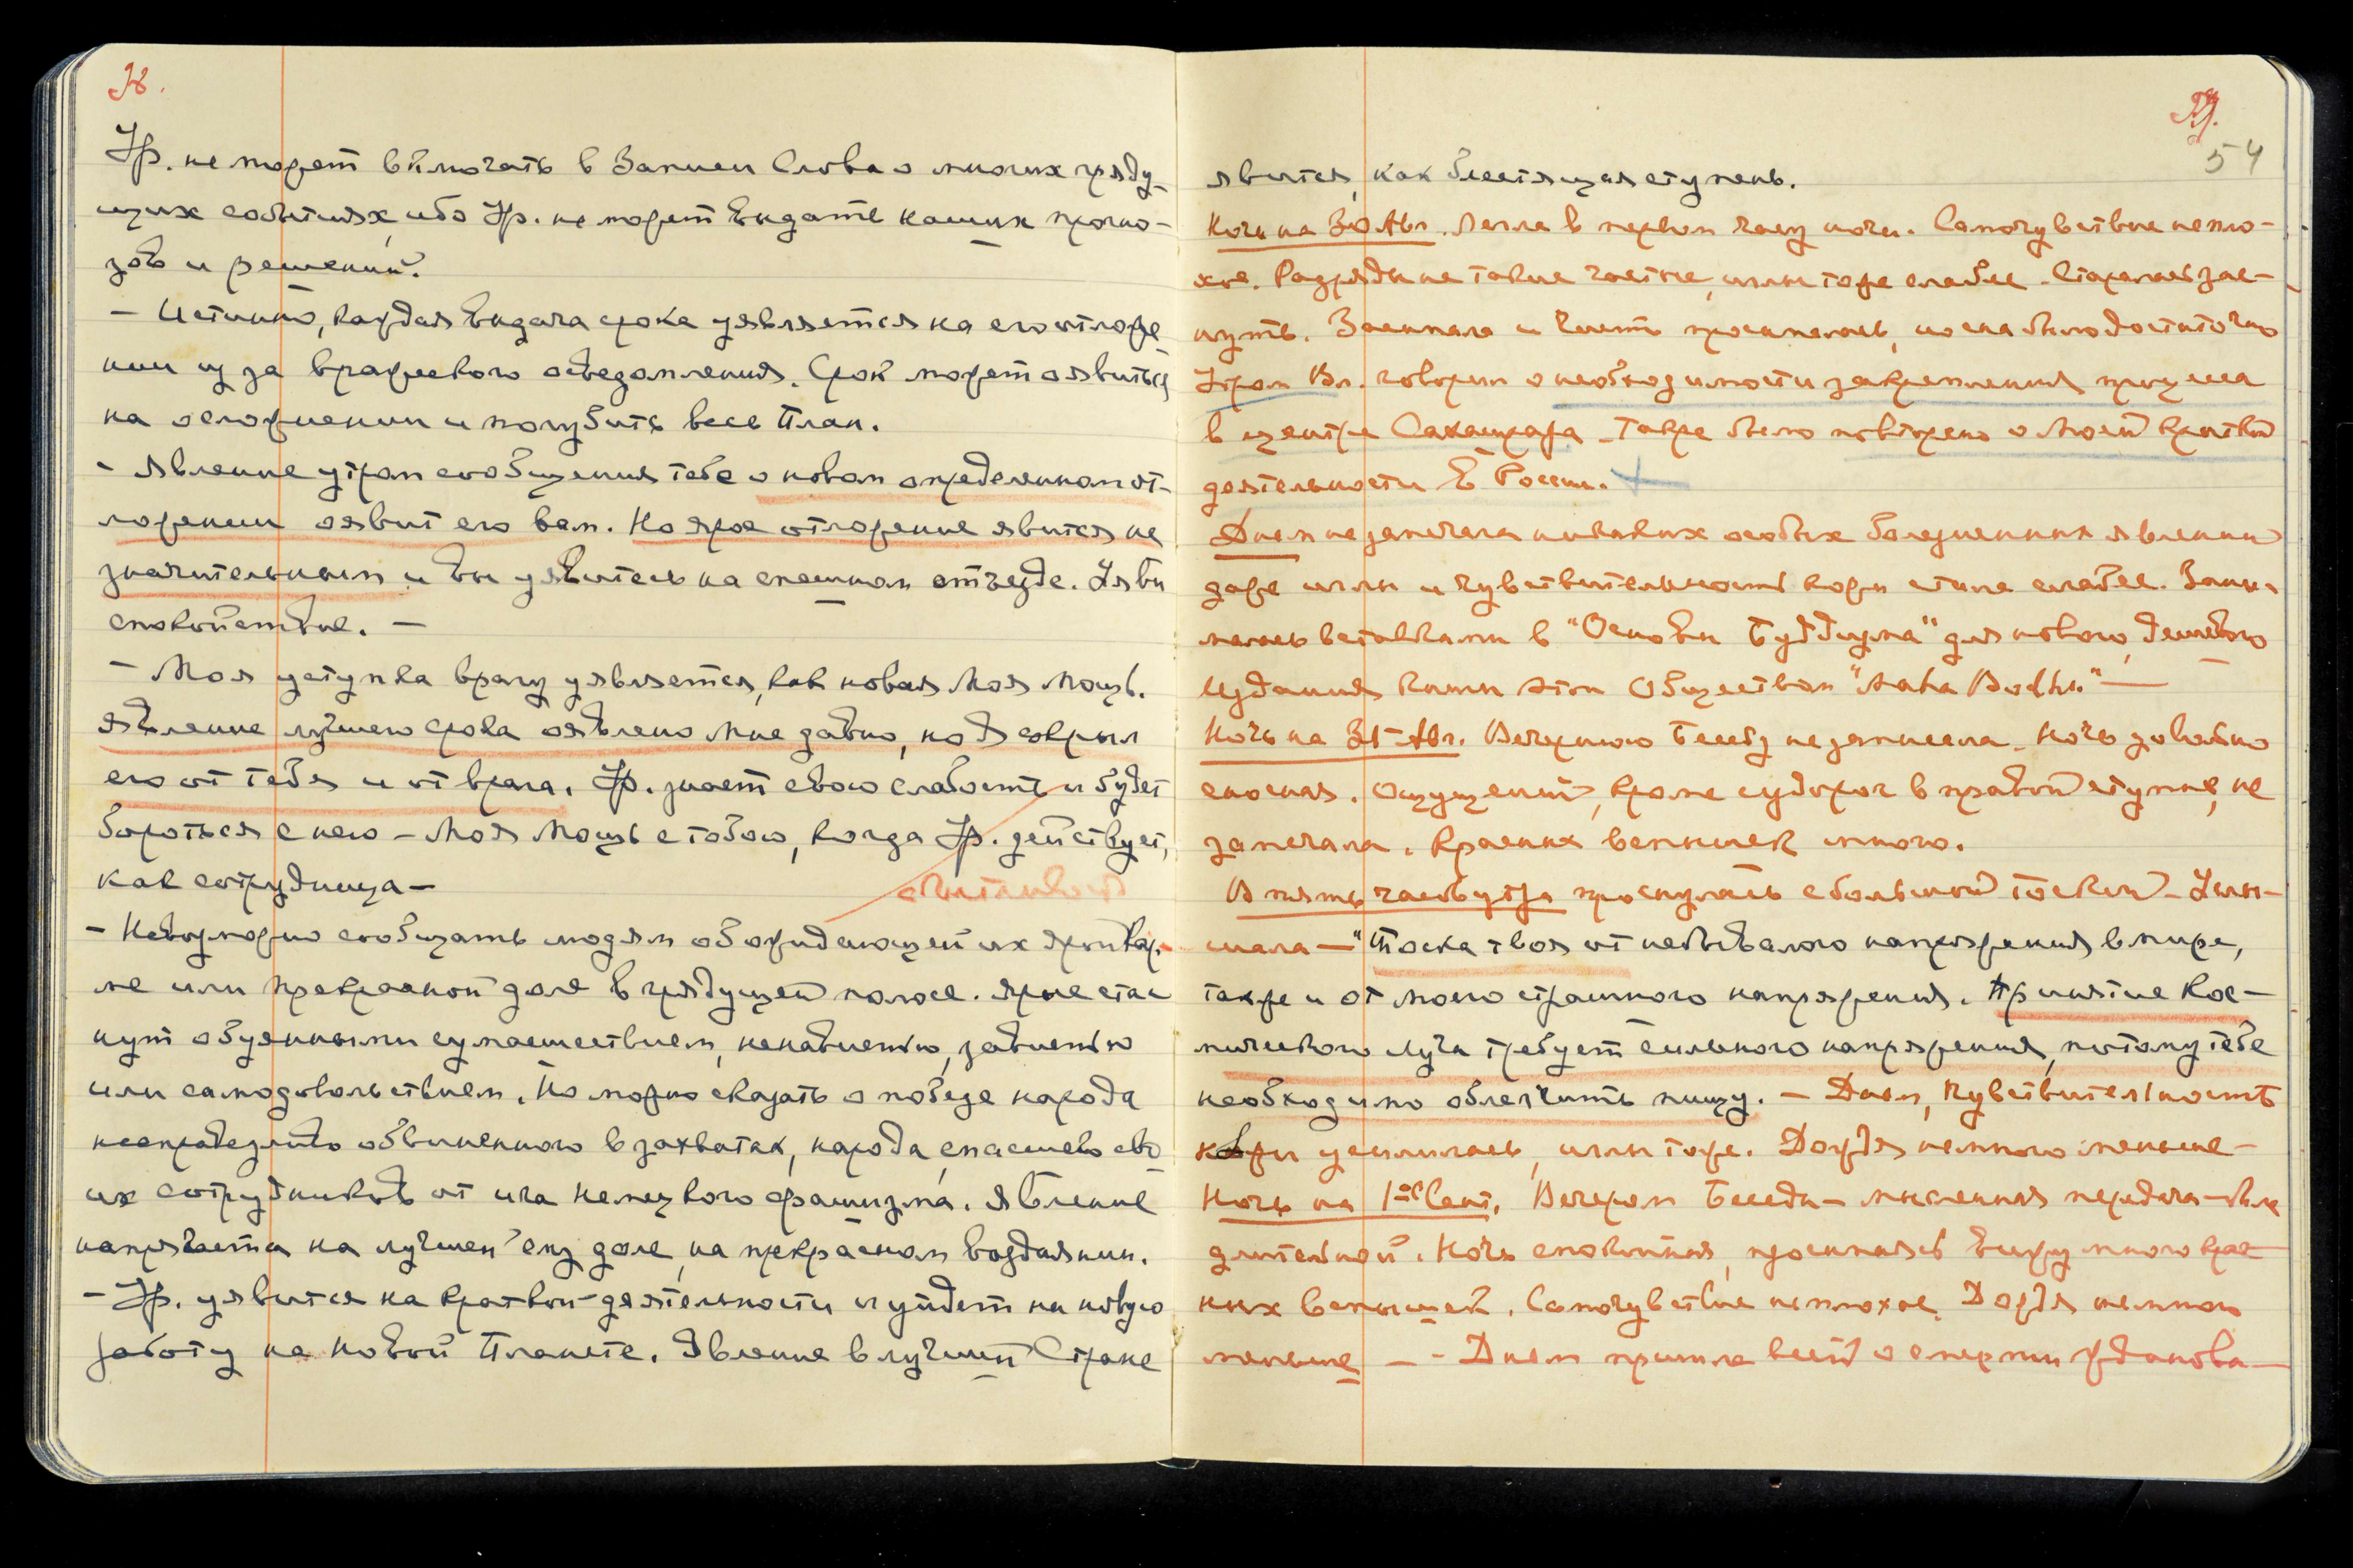 Ур. не может включать в Записи Слова о многих гряду-
щих событиях, ибо Ур. не может выдать наших прогно-
зов и решений.
— Истинно, каждая выдача срока уявляется на его отложе-
нии из за вражеского осведомления. Срок может оявиться
на осложнении и погубить весь План.
— Явление утром сообщения тебе о новом определенном от-
ложении оявит его вам. Но ярое отложение явится не
значительным и вы уявитесь на спешном отъезде. Уяви
спокойствие. —
— Моя уступка врагу уявляется, как новая Моя Мощь.
Явление лучшего срока оявлено Мне давно, но Я сокрыл
его от тебя и от врага. Ур. знает свою слабость и будет
бороться с нею — Моя Мощь с тобою, когда Ур. действует,
как сотрудница —
— Невозможно сообщать людям об ожидающей их ярой кар-
ме или прекрасной доле в грядущей полосе. Ярые ста-
нут обуянными сумасшествием, ненавистью, завистью
или самодовольствием. Но можно сказать о победе народа
несправедливо обвиненного в захватах, народа, спасшего сво-
их сотрудников от ига немецкого фашизма. Явление
напрягается на лучшей ему доле, на прекрасном воздаянии.
— Ур. уявится на краткой деятельности и уйдет на новую
работу на новой Планете. Явление в лучшей Стране
54
явится, как блестящая ступень.
Ночь на 30 Авг. Легла в первом часу ночи. Самочувствие непло-
хое. Разряды не такие частые, иглы тоже слабее. Старалась зас-
нуть. Засыпала и часто просыпалась, но сна было достаточно
Утром Вл. говорил о необходимости закрепления процесса
в центре Сахасрара. Также было повторено о моей краткой
деятельности в России. +
Днем не замечала никаких особых болезненных явлений
даже иглы и чувствительность кожи стала слабее. Зани-
малась вставками в "Основы Буддизма" для нового, дешевого
Издания книги этой Обществом "Maha Bodhi" —
Ночь на 31 Авг. Вечернюю Беседу не записала. Ночь довольно
сносная. Ощущений, кроме судорог в правой ступне, не
замечала. Красных вспышек много.
В пять часов утра проснулась с большой тоской — Услы-
шала — "Тоска твоя от небывалого напряжения в мире,
также и от Моего страшного напряжения. Принятие Кос-
мического Луча требует сильного напряжения, потому тебе
необходимо облегчить пищу. — Днем, чувствительность
кожи усилилась, иглы тоже. Дождя немного меньше —
Ночь на 1ое Сент. Вечером Беседа — мысленная передача — была
длительной. Ночь спокойная, просыпаясь вижу много крас-
ных вспышек. Самочувствие неплохое. Дождя немного
меньше — — Днем пришла весть о смерти Жданова —